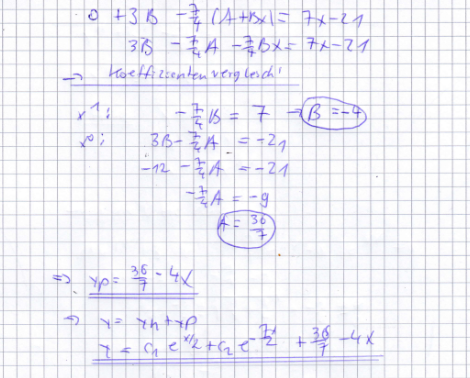 0 + 3B - 7/4 (A+Bx) = 7x - 21
3B - 7/4 A - 7/4 Bx = 7x - 21
→ Koeffizientenvergleich!
x¹: - 7/4 B = 7 → B = -4
x⁰: 3B - 7/4 A = -21
-12 - 7/4 A = -21
- 7/4 A = -9
A = 36/7
⇒ yp = 36/7 - 4x
⇒ y = yh + yp
y = c₁ e^(x/2) + c₂ e^(-7x/2) + 36/7 - 4x